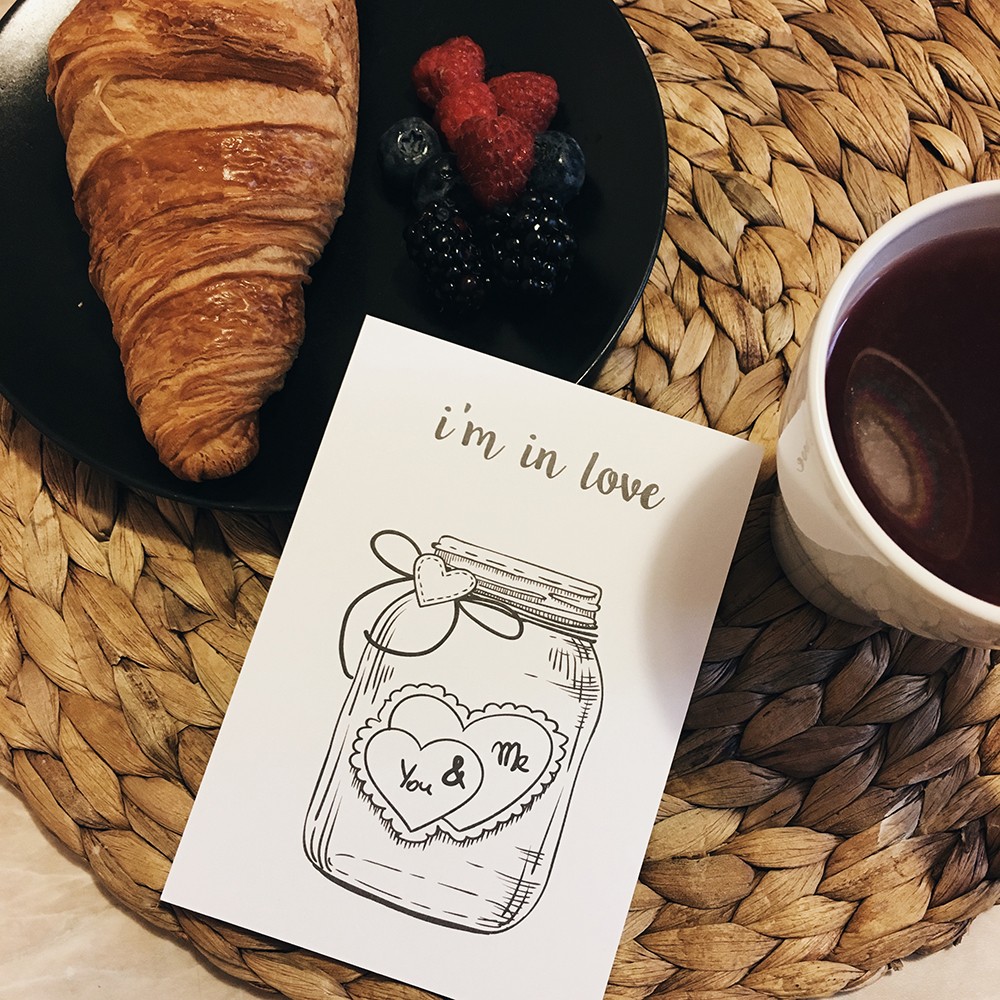 i'm in love
You & Me